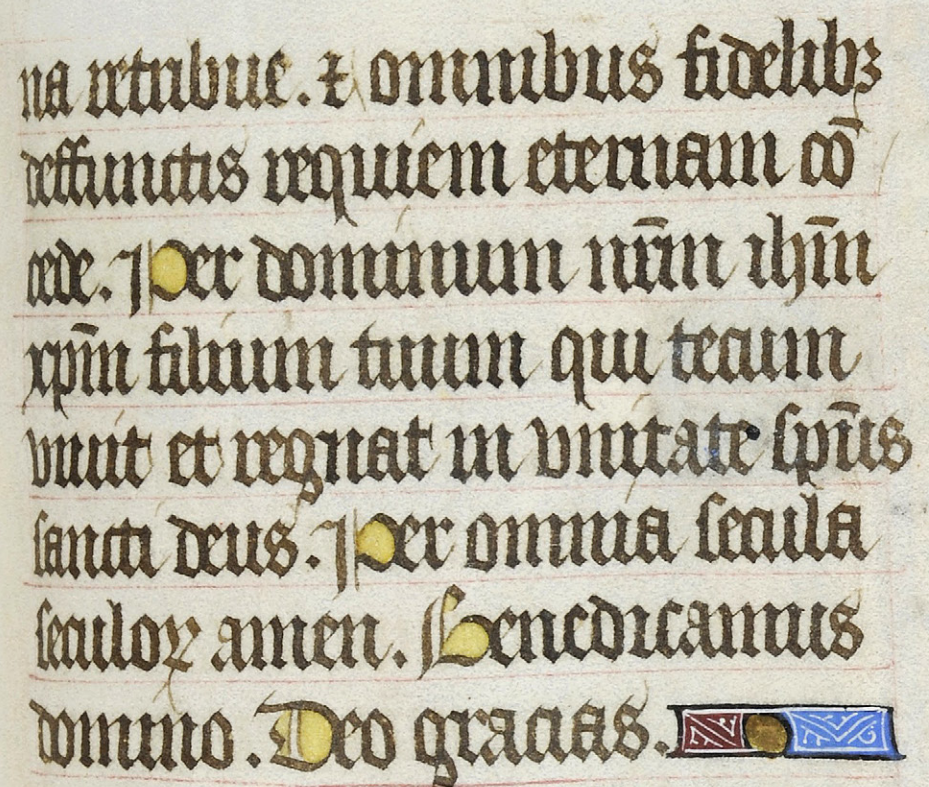 na retribue. ⁊ omnibus fidelibꝫ
deffunctis requiem eternam cō
cede. Per dominum nr̄m ihm̄
xpm̄ filium tuum qui tecum
viuit et regnat in vnitate spūs
sancti deus. Per omnia secula
seculoꝝ amen. Benedicamus
domino. Deo gracias.